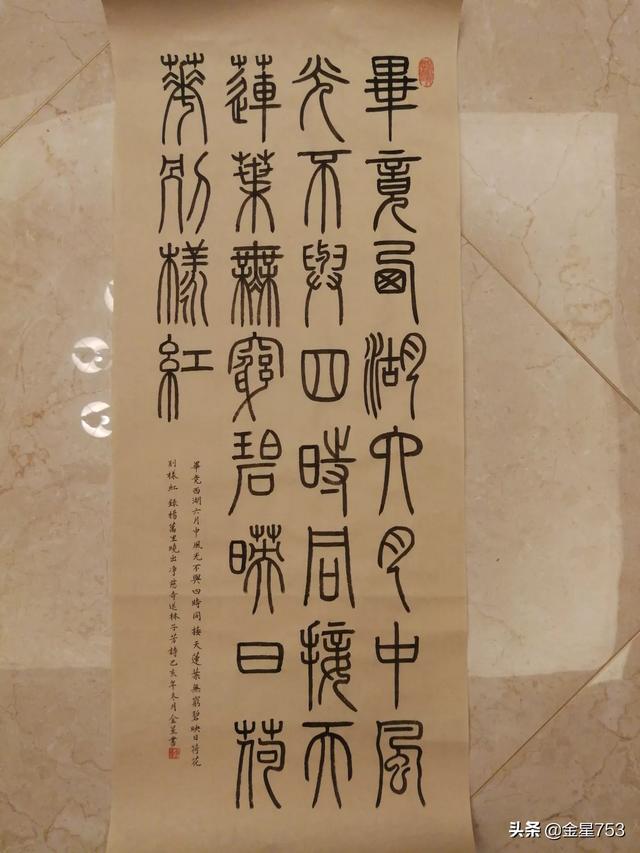 畢竟西湖六月中風
光不與四時同接天
蓮葉無窮碧暎日荷
華別樣紅
畢竟西湖六月中風光不與四時同接天蓮葉無窮碧映日荷花
別樣紅 錄楊萬里曉出净慈寺送林子芳詩己亥年冬月金星書
头条 @金星753